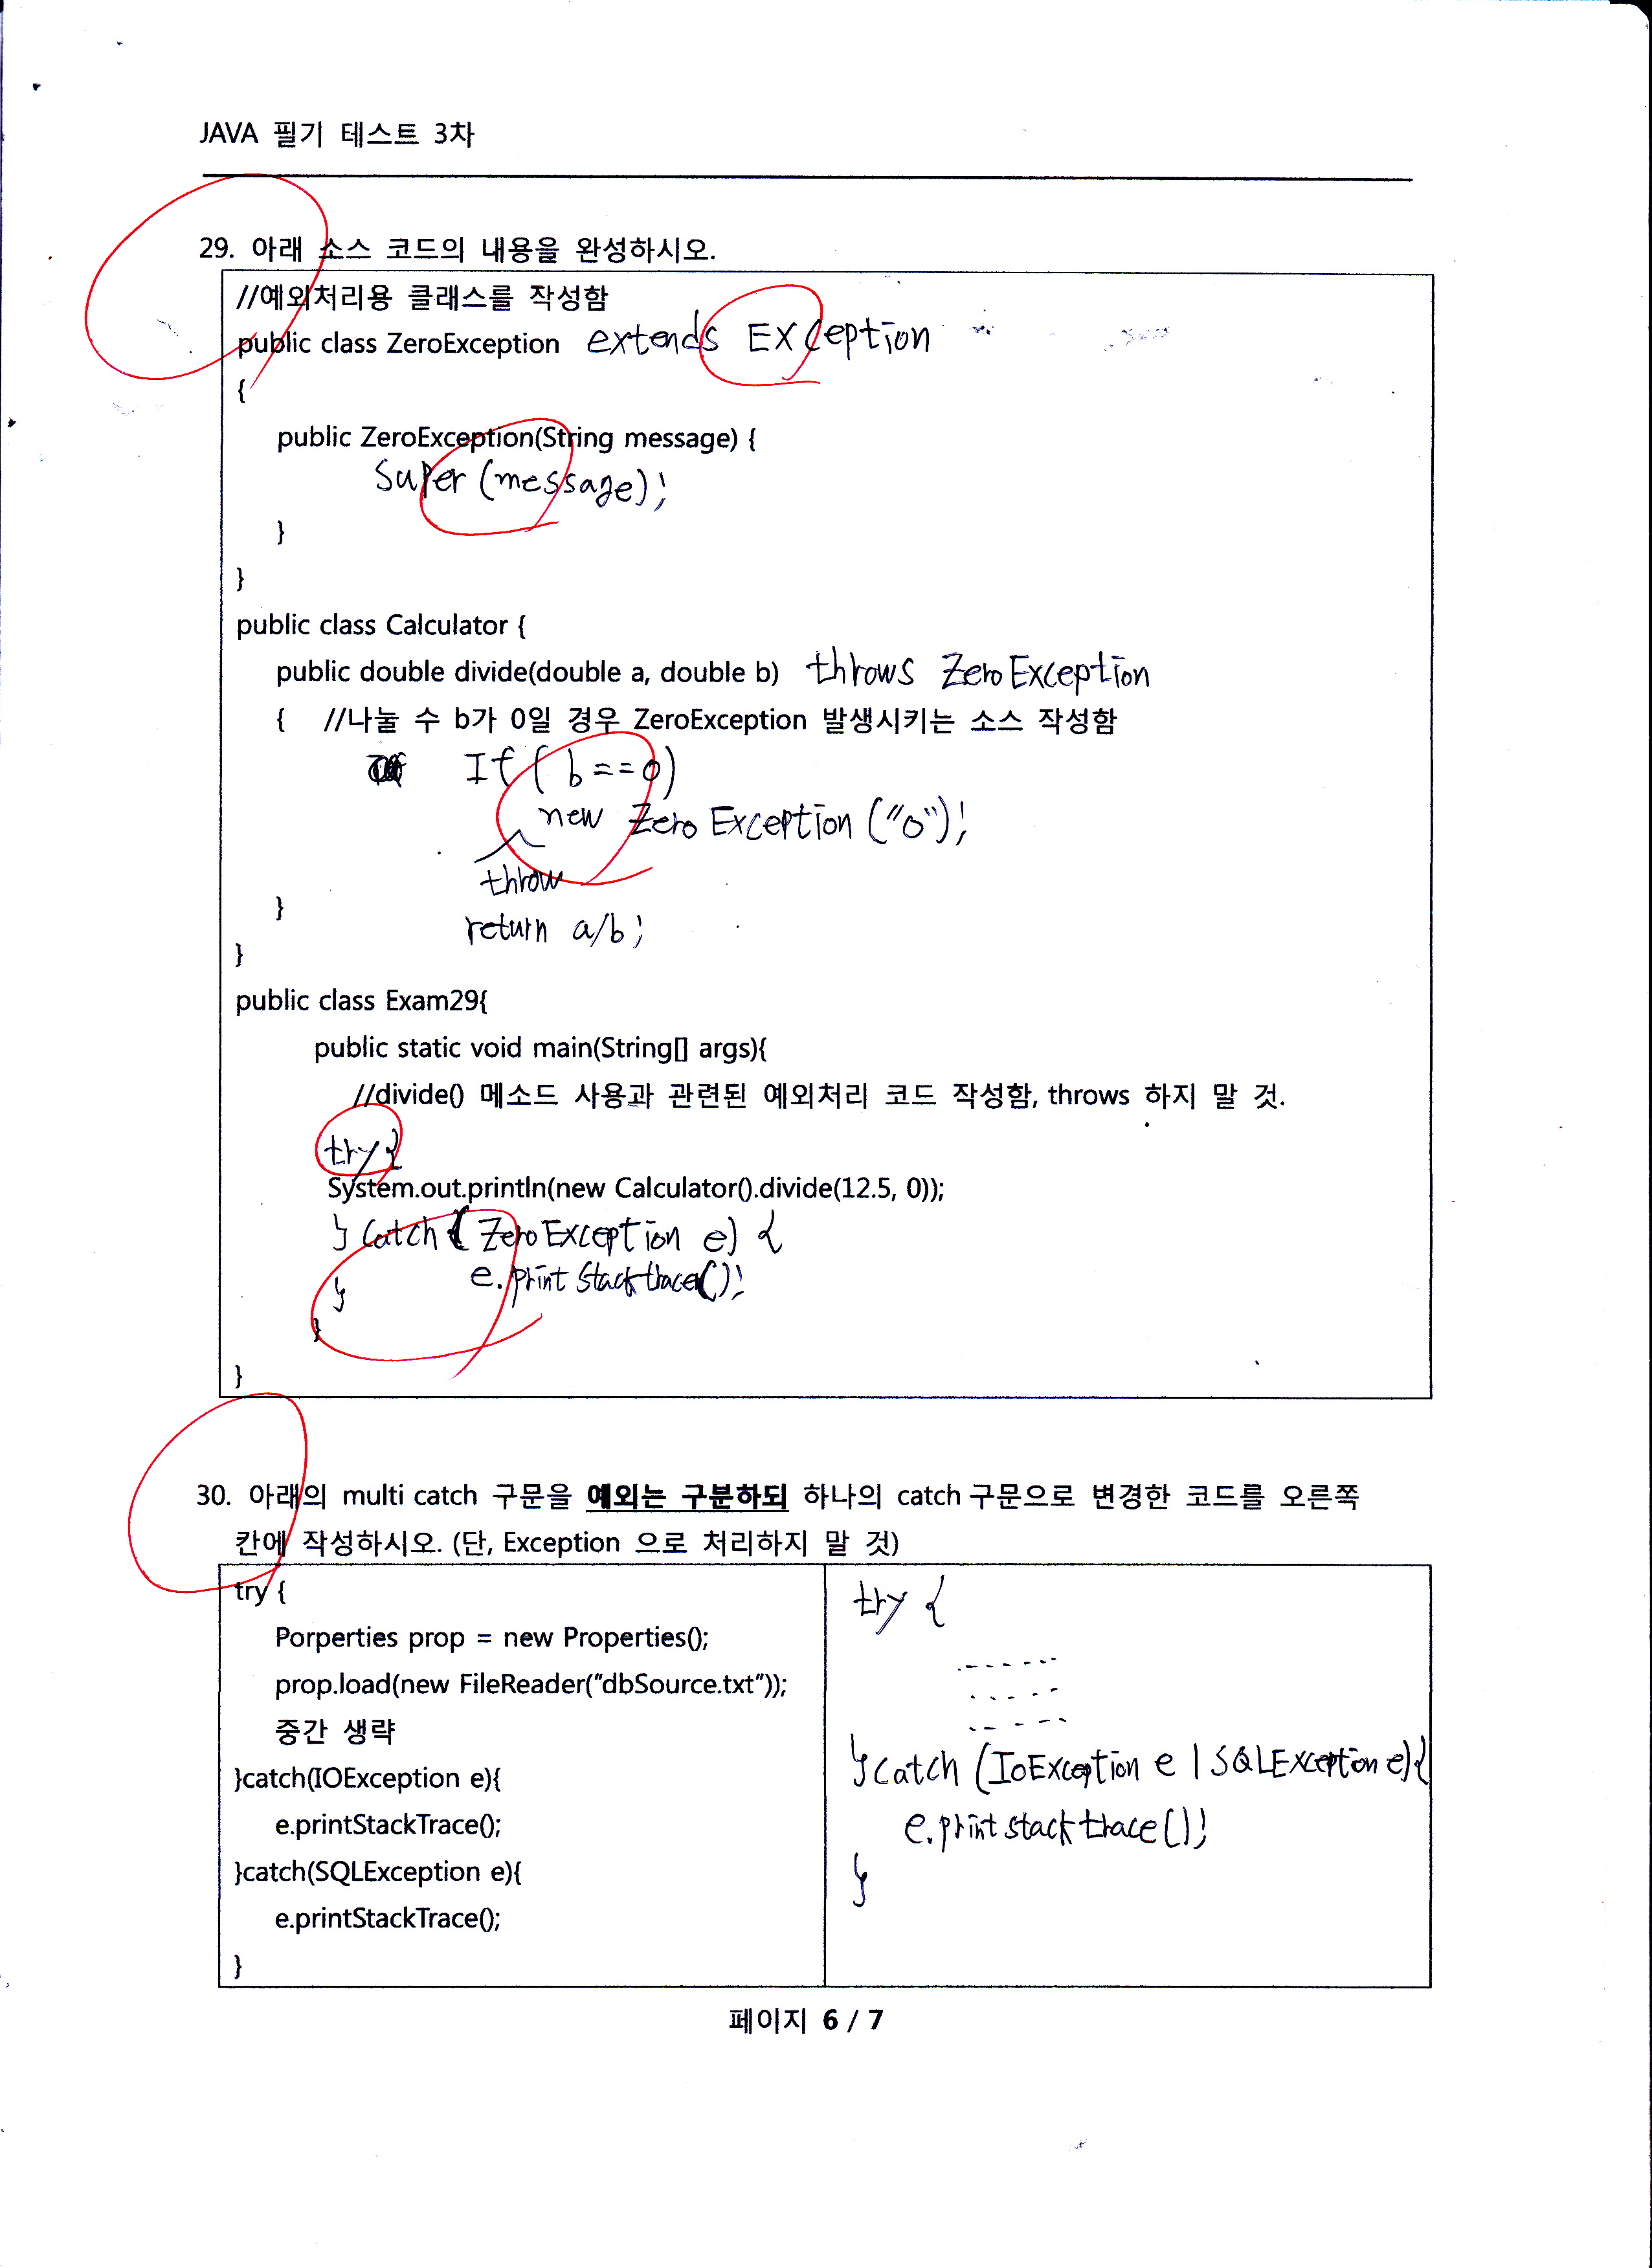 JAVA 필기 테스트 3차
29. 아래 소스 코드의 내용을 완성하시오.
//예외처리용 클래스를 작성함
public class ZeroException extends Exception
{
public ZeroException(String message) {
super(message);
}
}
public class Calculator {
public double divide(double a, double b) throws ZeroException
{ //나눌 수 b가 0일 경우 ZeroException 발생시키는 소스 작성함
If ( b==0)
new ZeroException("0");
throw
}
return a/b;
}
public class Exam29{
public static void main(String[] args){
//divide() 메소드 사용과 관련된 예외처리 코드 작성함, throws 하지 말 것.
try{
System.out.println(new Calculator().divide(12.5, 0));
} catch ( ZeroException e) {
e.print stack trace();
}
}
}
30. 아래의 multi catch 구문을 예외는 구분하되 하나의 catch 구문으로 변경한 코드를 오른쪽
칸에 작성하시오. (단, Exception 으로 처리하지 말 것)
try {
Porperties prop = new Properties();
prop.load(new FileReader("dbSource.txt"));
중간 생략
}catch(IOException e){
e.printStackTrace();
}catch(SQLException e){
e.printStackTrace();
}
try {
- - - - - -
- - - - -
- - - - -
}catch (IoException e | SQLException e){
e.print stack trace();
}
페이지 6 / 7